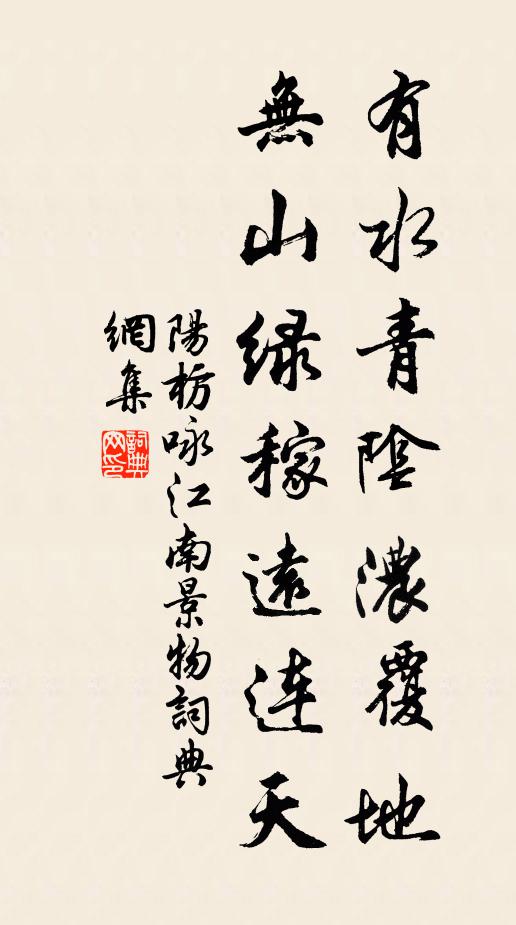 有水青陰濃覆地
無山緑稼遠連天
陽枋咏江南景物詞典
網集
詞典
网印